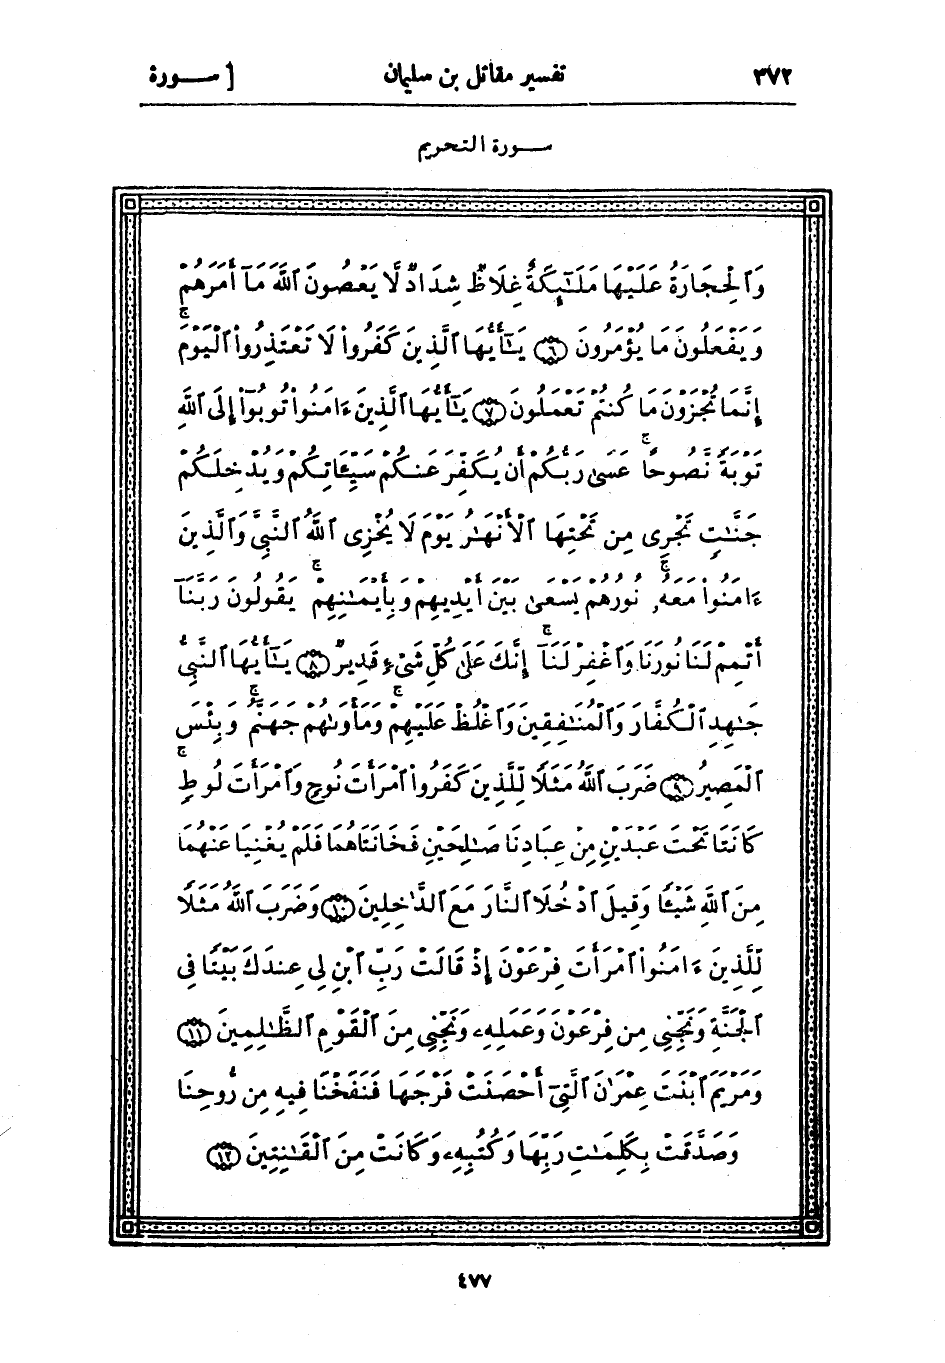 ٣٧٢ تفسير مقاتل بن سليمان [ ســـورة
ســورة التحريم
وَٱلْحِجَارَةُ عَلَيْهَا مَلَـٰٓئِكَةٌ غِلَاظٌ شِدَادٌ لَّا يَعْصُونَ ٱللَّهَ مَآ أَمَرَهُمْ
وَيَفْعَلُونَ مَا يُؤْمَرُونَ ﴿٦﴾ يَـٰٓأَيُّهَا ٱلَّذِينَ كَفَرُوا۟ لَا تَعْتَذِرُوا۟ ٱلْيَوْمَ ۖ
إِنَّمَا تُجْزَوْنَ مَا كُنتُمْ تَعْمَلُونَ ﴿٧﴾ يَـٰٓأَيُّهَا ٱلَّذِينَ ءَامَنُوا۟ تُوبُوٓا۟ إِلَى ٱللَّهِ
تَوْبَةً نَّصُوحًا ۚ عَسَىٰ رَبُّكُمْ أَن يُكَفِّرَ عَنكُمْ سَيِّـَٔاتِكُمْ وَيُدْخِلَكُمْ
جَنَّـٰتٍ تَجْرِى مِن تَحْتِهَا ٱلْأَنْهَـٰرُ يَوْمَ لَا يُخْزِى ٱللَّهُ ٱلنَّبِىَّ وَٱلَّذِينَ
ءَامَنُوا۟ مَعَهُۥ ۚ نُورُهُمْ يَسْعَىٰ بَيْنَ أَيْدِيهِمْ وَبِأَيْمَـٰنِهِمْ ۚ يَقُولُونَ رَبَّنَآ
أَتْمِمْ لَنَا نُورَنَا وَٱغْفِرْ لَنَآ ۚ إِنَّكَ عَلَىٰ كُلِّ شَىْءٍ قَدِيرٌ ﴿٨﴾ يَـٰٓأَيُّهَا ٱلنَّبِىُّ
جَـٰهِدِ ٱلْكُفَّارَ وَٱلْمُنَـٰفِقِينَ وَٱغْلُظْ عَلَيْهِمْ ۚ وَمَأْوَىٰهُمْ جَهَنَّمُ ۚ وَبِئْسَ
ٱلْمَصِيرُ ﴿٩﴾ ضَرَبَ ٱللَّهُ مَثَلًا لِّلَّذِينَ كَفَرُوا۟ ٱمْرَأَتَ نُوحٍ وَٱمْرَأَتَ لُوطٍ ۚ
كَانَتَا تَحْتَ عَبْدَيْنِ مِنْ عِبَادِنَا صَـٰلِحَيْنِ فَخَانَتَاهُمَا فَلَمْ يُغْنِيَا عَنْهُمَا
مِنَ ٱللَّهِ شَيْـًٔا وَقِيلَ ٱدْخُلَا ٱلنَّارَ مَعَ ٱلدَّٰخِلِينَ ﴿١٠﴾ وَضَرَبَ ٱللَّهُ مَثَلًا
لِّلَّذِينَ ءَامَنُوا۟ ٱمْرَأَتَ فِرْعَوْنَ إِذْ قَالَتْ رَبِّ ٱبْنِ لِى عِندَكَ بَيْتًا فِى
ٱلْجَنَّةِ وَنَجِّنِى مِن فِرْعَوْنَ وَعَمَلِهِۦ وَنَجِّنِى مِنَ ٱلْقَوْمِ ٱلظَّـٰلِمِينَ ﴿١١﴾
وَمَرْيَمَ ٱبْنَتَ عِمْرَٰنَ ٱلَّتِىٓ أَحْصَنَتْ فَرْجَهَا فَنَفَخْنَا فِيهِ مِن رُّوحِنَا
وَصَدَّقَتْ بِكَلِمَـٰتِ رَبِّهَا وَكُتُبِهِۦ وَكَانَتْ مِنَ ٱلْقَـٰنِتِينَ ﴿١٢﴾
٤٧٧